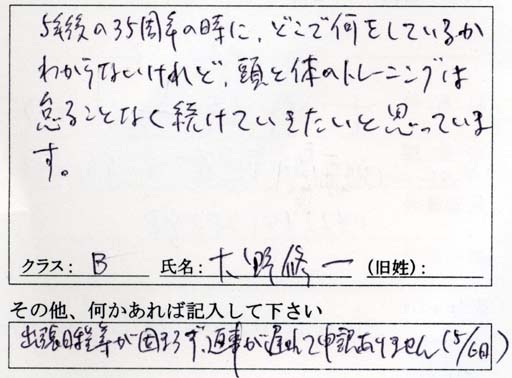 5年後の35周年の時に、どこで何をしているか
わからないけれど、頭と体のトレーニングは
怠ることなく続けていきたいと思っていま
す。
クラス: B 氏名: 大野修一 (旧姓):
その他、何かあれば記入して下さい
出張日程等が固まらず、返事が遅れて申訳ありません(5/6日)